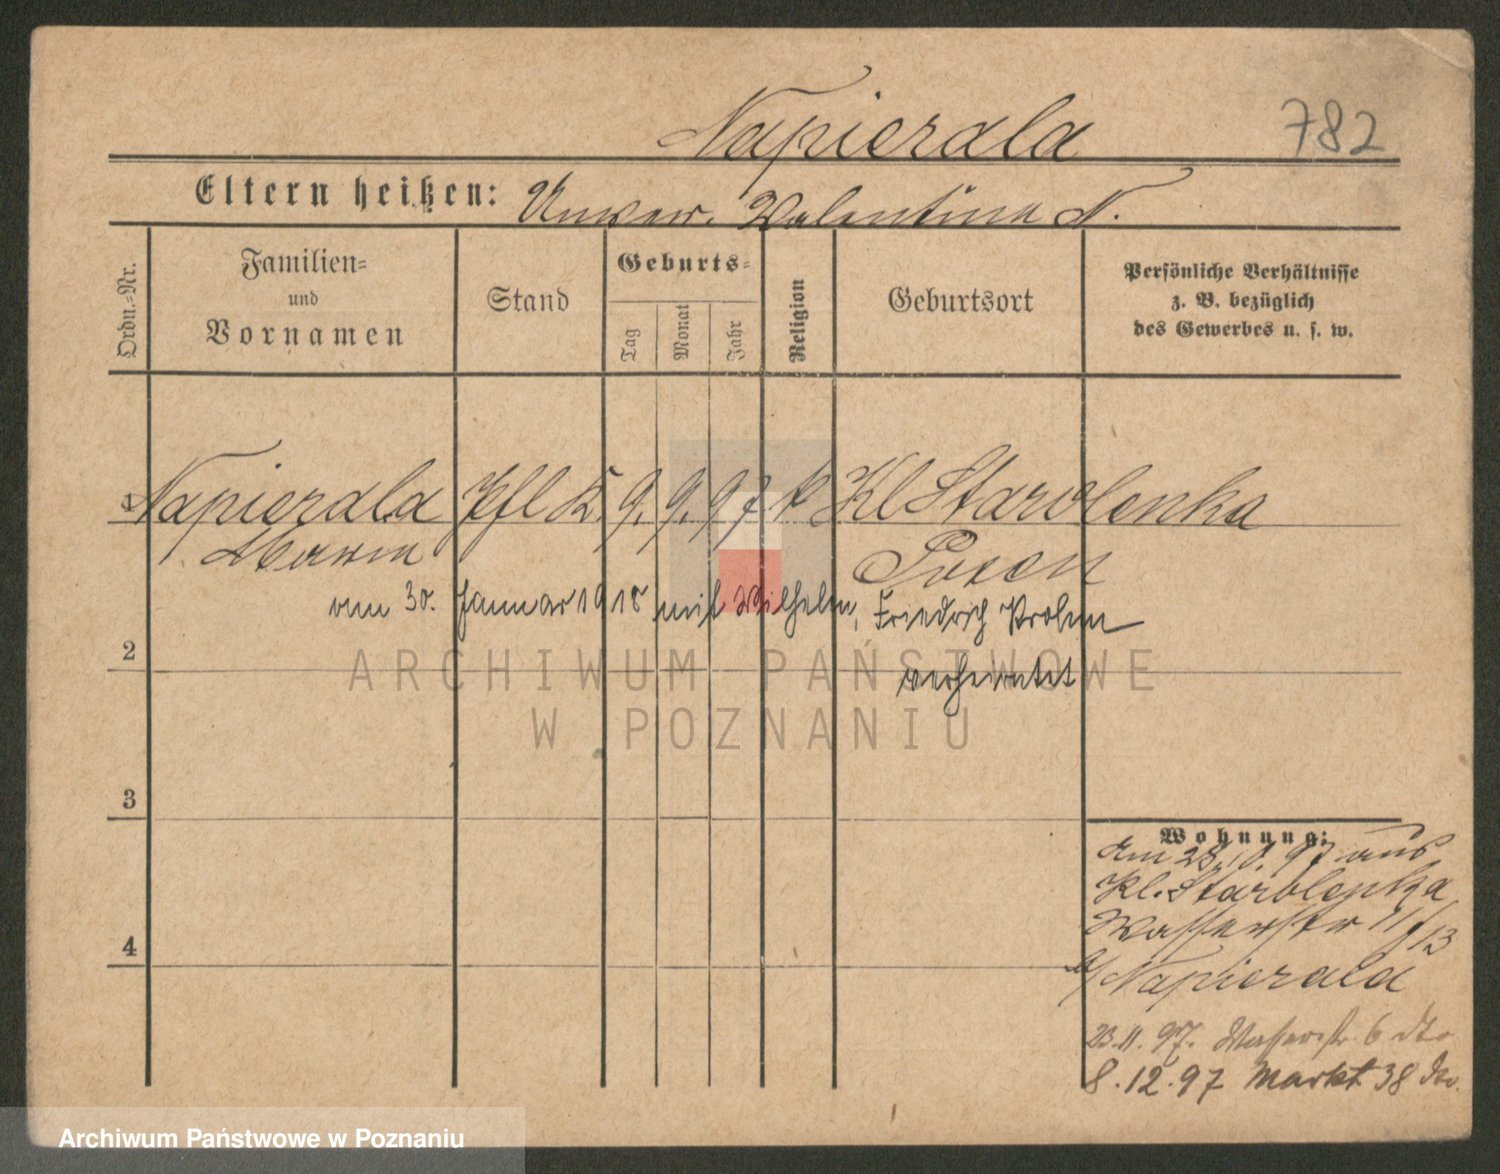 Napierala
782
Eltern heißen: Unver. Valentina N.
Ordn.-Nr.
Familien-
und
Vornamen
Stand
Geburts-
Tag
Monat
Jahr
Religion
Geburtsort
Persönliche Verhältnisse
z. B. bezüglich
des Gewerbes u. s. w.
1 Napierala Pfl K. 9. 9. 97. k Kl Starolenka
Maria Posen
am 30. Januar 1918 mit Wilhelm, Friedrich Prohm
verheiratet
2
3
4
Wohnung:
Am 28.10.97 aus
Kl. Starolenka
Wasserstr 11/13
b/ Napierala
23.11.97. Wasserstr. 6 dto
8.12.97 Markt 38 dto.
ARCHIWUM PAŃSTWOWE
W POZNANIU
Archiwum Państwowe w Poznaniu